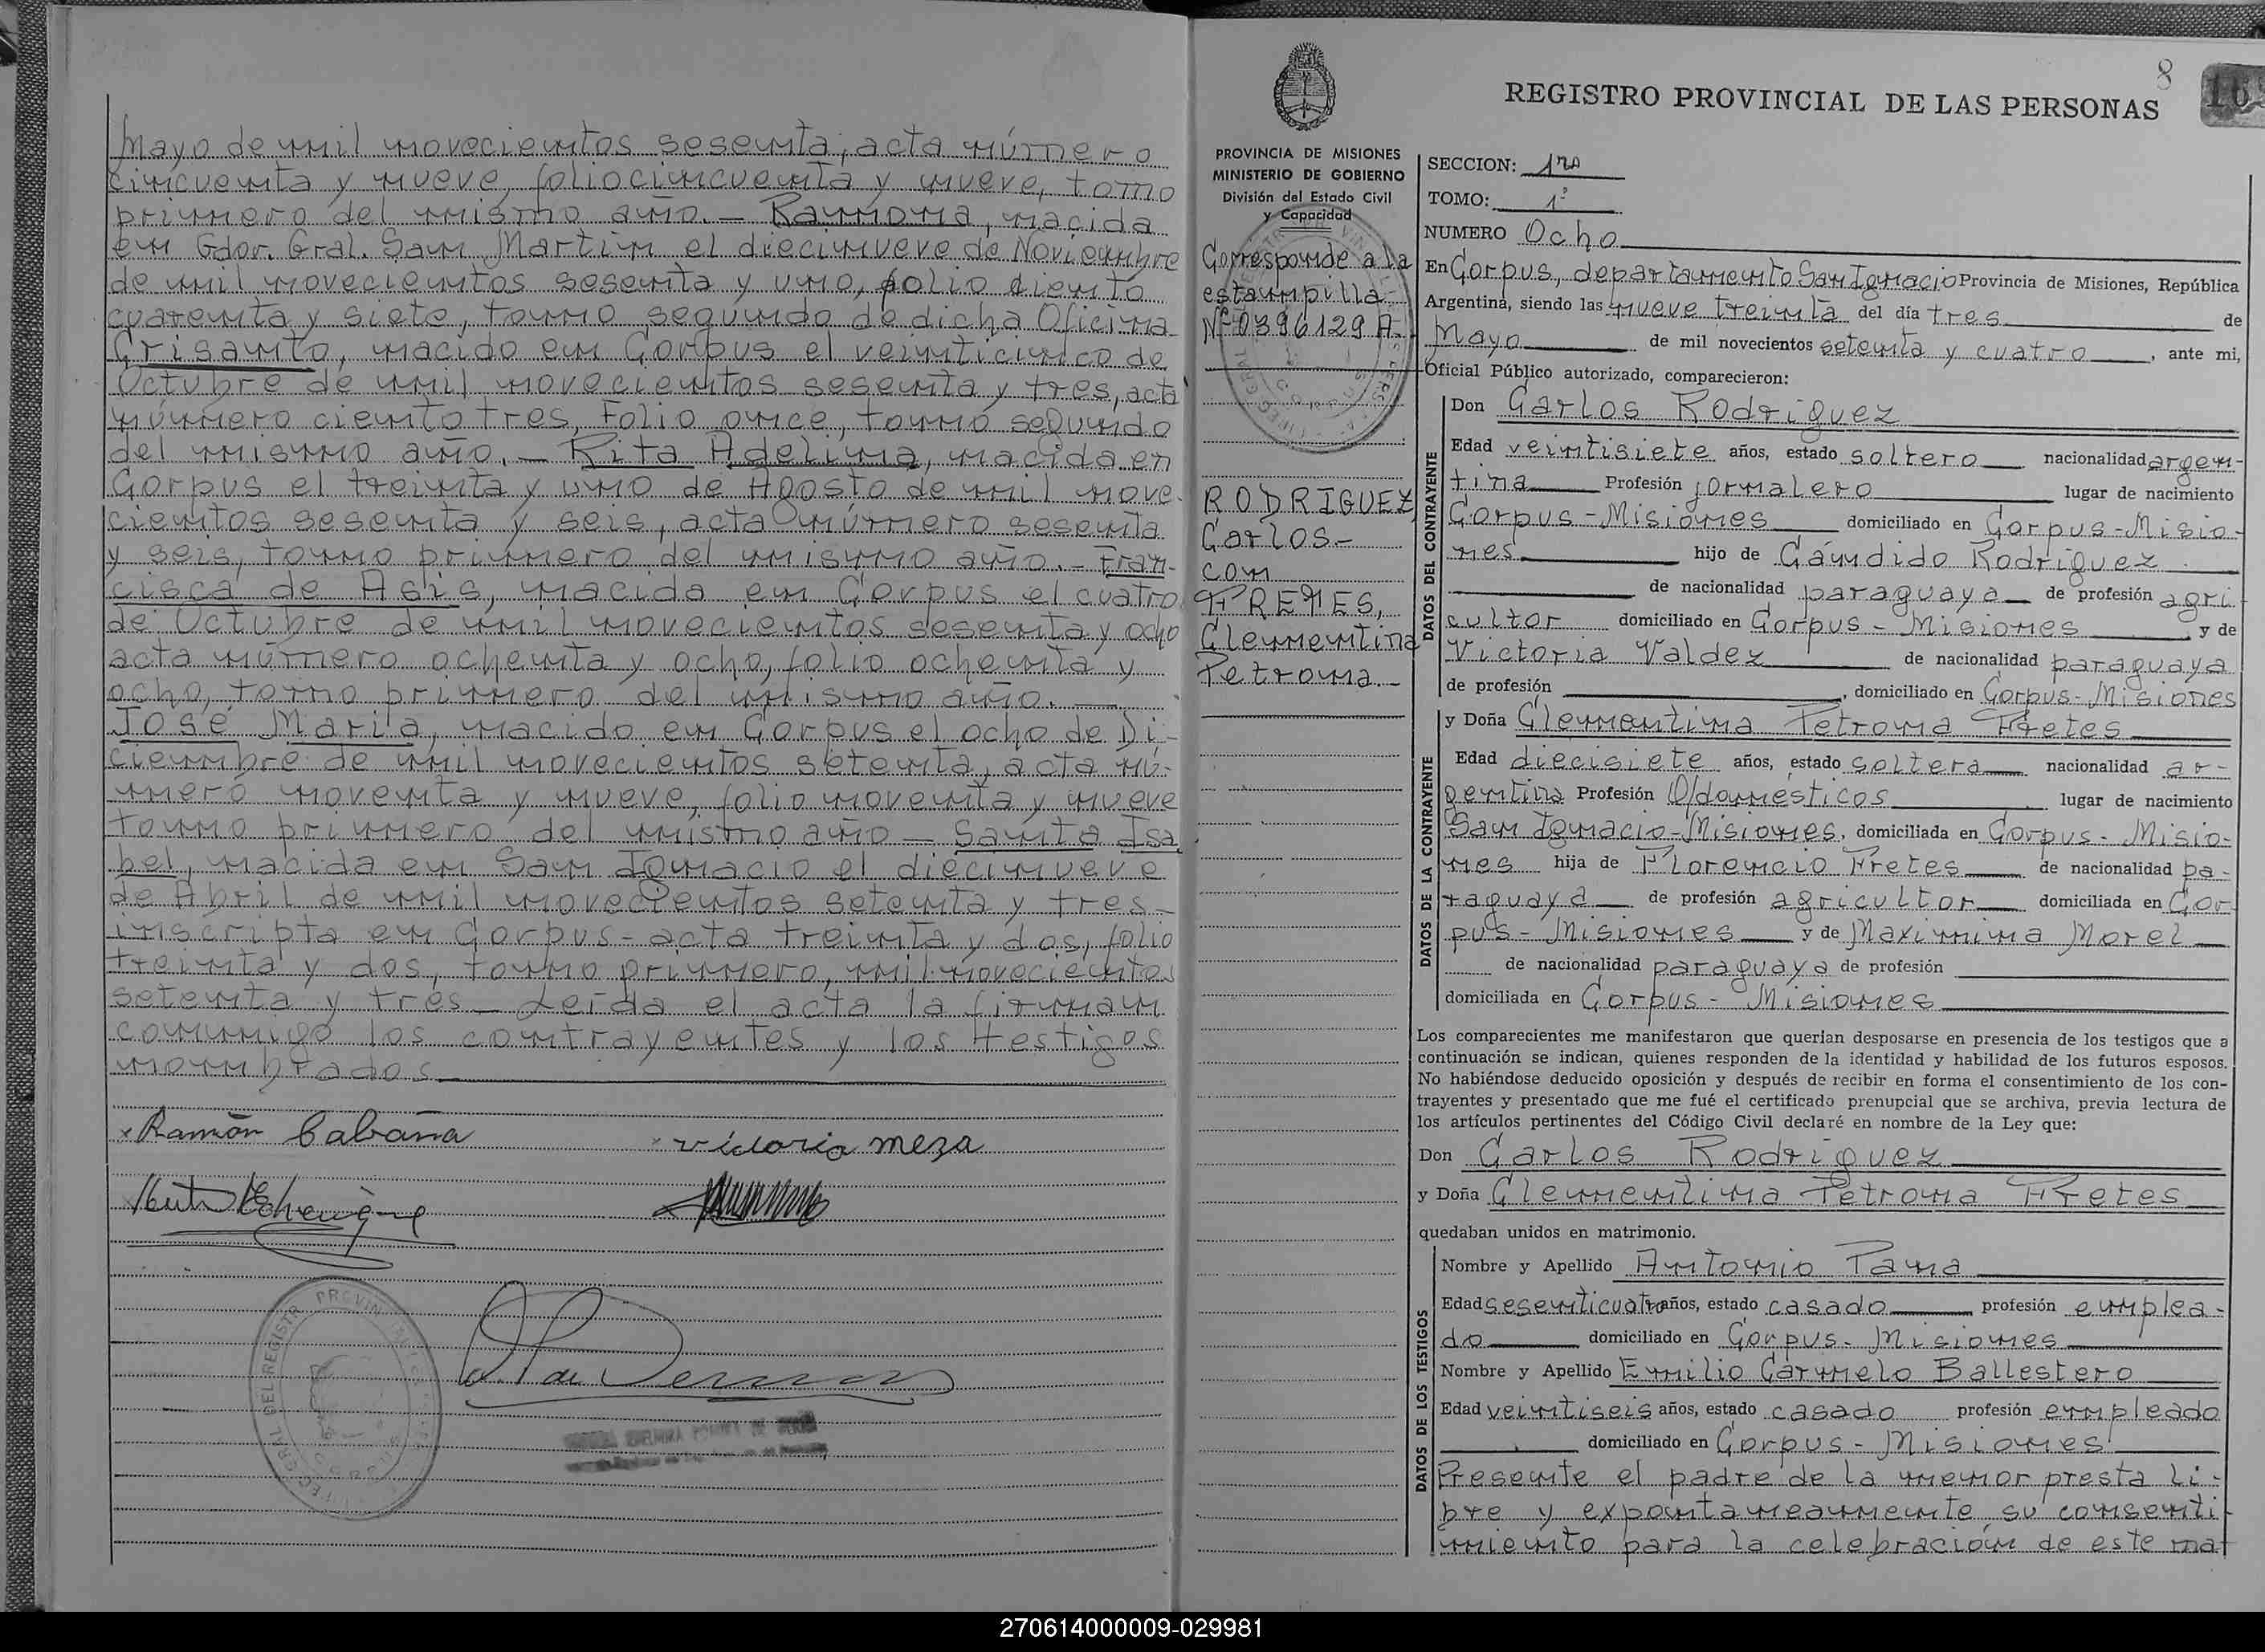 Mayo de mil novecientos sesenta, acta número
cincuenta y nueve, folio cincuenta y nueve, tomo
primero del mismo año.- Ramona, nacida
en Gdor. Gral. San Martin el diecinueve de Noviembre
de mil novecientos sesenta y uno, folio ciento
cuarenta y siete, tomo segundo de dicha Oficina
Crisanto, nacido en Corpus el veinticinco de
Octubre de mil novecientos sesenta y tres, acta
número ciento tres, Folio once, tomo segundo
del mismo año.- Rita Adelina, nacida en
Corpus el treinta y uno de Agosto de mil nove-
cientos sesenta y seis, acta número sesenta
y seis, tomo primero del mismo año.- Fran-
cisca de Asis, nacida en Corpus el cuatro
de Octubre de mil novecientos sesenta y ocho
acta número ochenta y ocho, folio ochenta y
ocho, tomo primero del mismo año.-
José Maria, nacido en Corpus el ocho de Di-
ciembre de mil novecientos setenta, acta nú-
mero noventa y nueve, folio noventa y nueve
tomo primero del mismo año - Santa Isa
bel, nacida en San Ignacio el diecinueve
de Abril de mil novecientos setenta y tres-
inscripta en Corpus- acta treinta y dos, folio
treinta y dos, tomo primero, mil novecientos
setenta y tres- Leída el acta la firman
conmigo los contrayentes y los testigos
nombrados
x Ramón Cabaña x victoria meza
8
REGISTRO PROVINCIAL DE LAS PERSONAS
16
PROVINCIA DE MISIONES
MINISTERIO DE GOBIERNO
División del Estado Civil
y Capacidad
Corresponde a la
estampilla
Nº 0396129 A-
RODRIGUEZ,
Carlos-
con
FRETES,
Clementina
Petrona.-
SECCION: 1ra
TOMO: 1º
NUMERO Ocho
En Corpus, departamento San Ignacio Provincia de Misiones, República
Argentina, siendo las nueve treinta del día tres de
Mayo de mil novecientos setenta y cuatro, ante mi,
Oficial Público autorizado, comparecieron:
DATOS DEL CONTRAYENTE
Don Carlos Rodriguez
Edad veintisiete años, estado soltero nacionalidad argen-
tina Profesión jornalero lugar de nacimiento
Corpus-Misiones domiciliado en Corpus-Misio-
nes hijo de Cándido Rodriguez
de nacionalidad paraguaya de profesión agri
cultor domiciliado en Corpus - Misiones, y de
Victoria Valdez de nacionalidad paraguaya
de profesión , domiciliado en Corpus-Misiones
DATOS DE LA CONTRAYENTE
y Doña Clementina Petrona Fretes
Edad diecisiete años, estado soltera nacionalidad ar-
gentina Profesión Q/domésticos lugar de nacimiento
San Ignacio-Misiones, domiciliada en Corpus- Misio-
nes hija de Florencio Fretes de nacionalidad pa-
raguaya de profesión agricultor domiciliada en Cor
pus- Misiones y de Maximina Morel
de nacionalidad paraguaya de profesión
domiciliada en Corpus- Misiones
Los comparecientes me manifestaron que querían desposarse en presencia de los testigos que a
continuación se indican, quienes responden de la identidad y habilidad de los futuros esposos.
No habiéndose deducido oposición y después de recibir en forma el consentimiento de los con-
trayentes y presentado que me fué el certificado prenupcial que se archiva, previa lectura de
los artículos pertinentes del Código Civil declaré en nombre de la Ley que:
Don Carlos Rodriguez
y Doña Clementina Petrona Fretes
quedaban unidos en matrimonio.
DATOS DE LOS TESTIGOS
Nombre y Apellido Antonio Pana
Edad sesenticuatro años, estado casado profesión emplea-
do domiciliado en Corpus- Misiones
Nombre y Apellido Emilio Carmelo Ballestero
Edad veintiseis años, estado casado profesión empleado
domiciliado en Corpus- Misiones
Presente el padre de la menor presta li-
bre y expontaneamente su consenti-
miento para la celebración de este mat
270614000009-029981